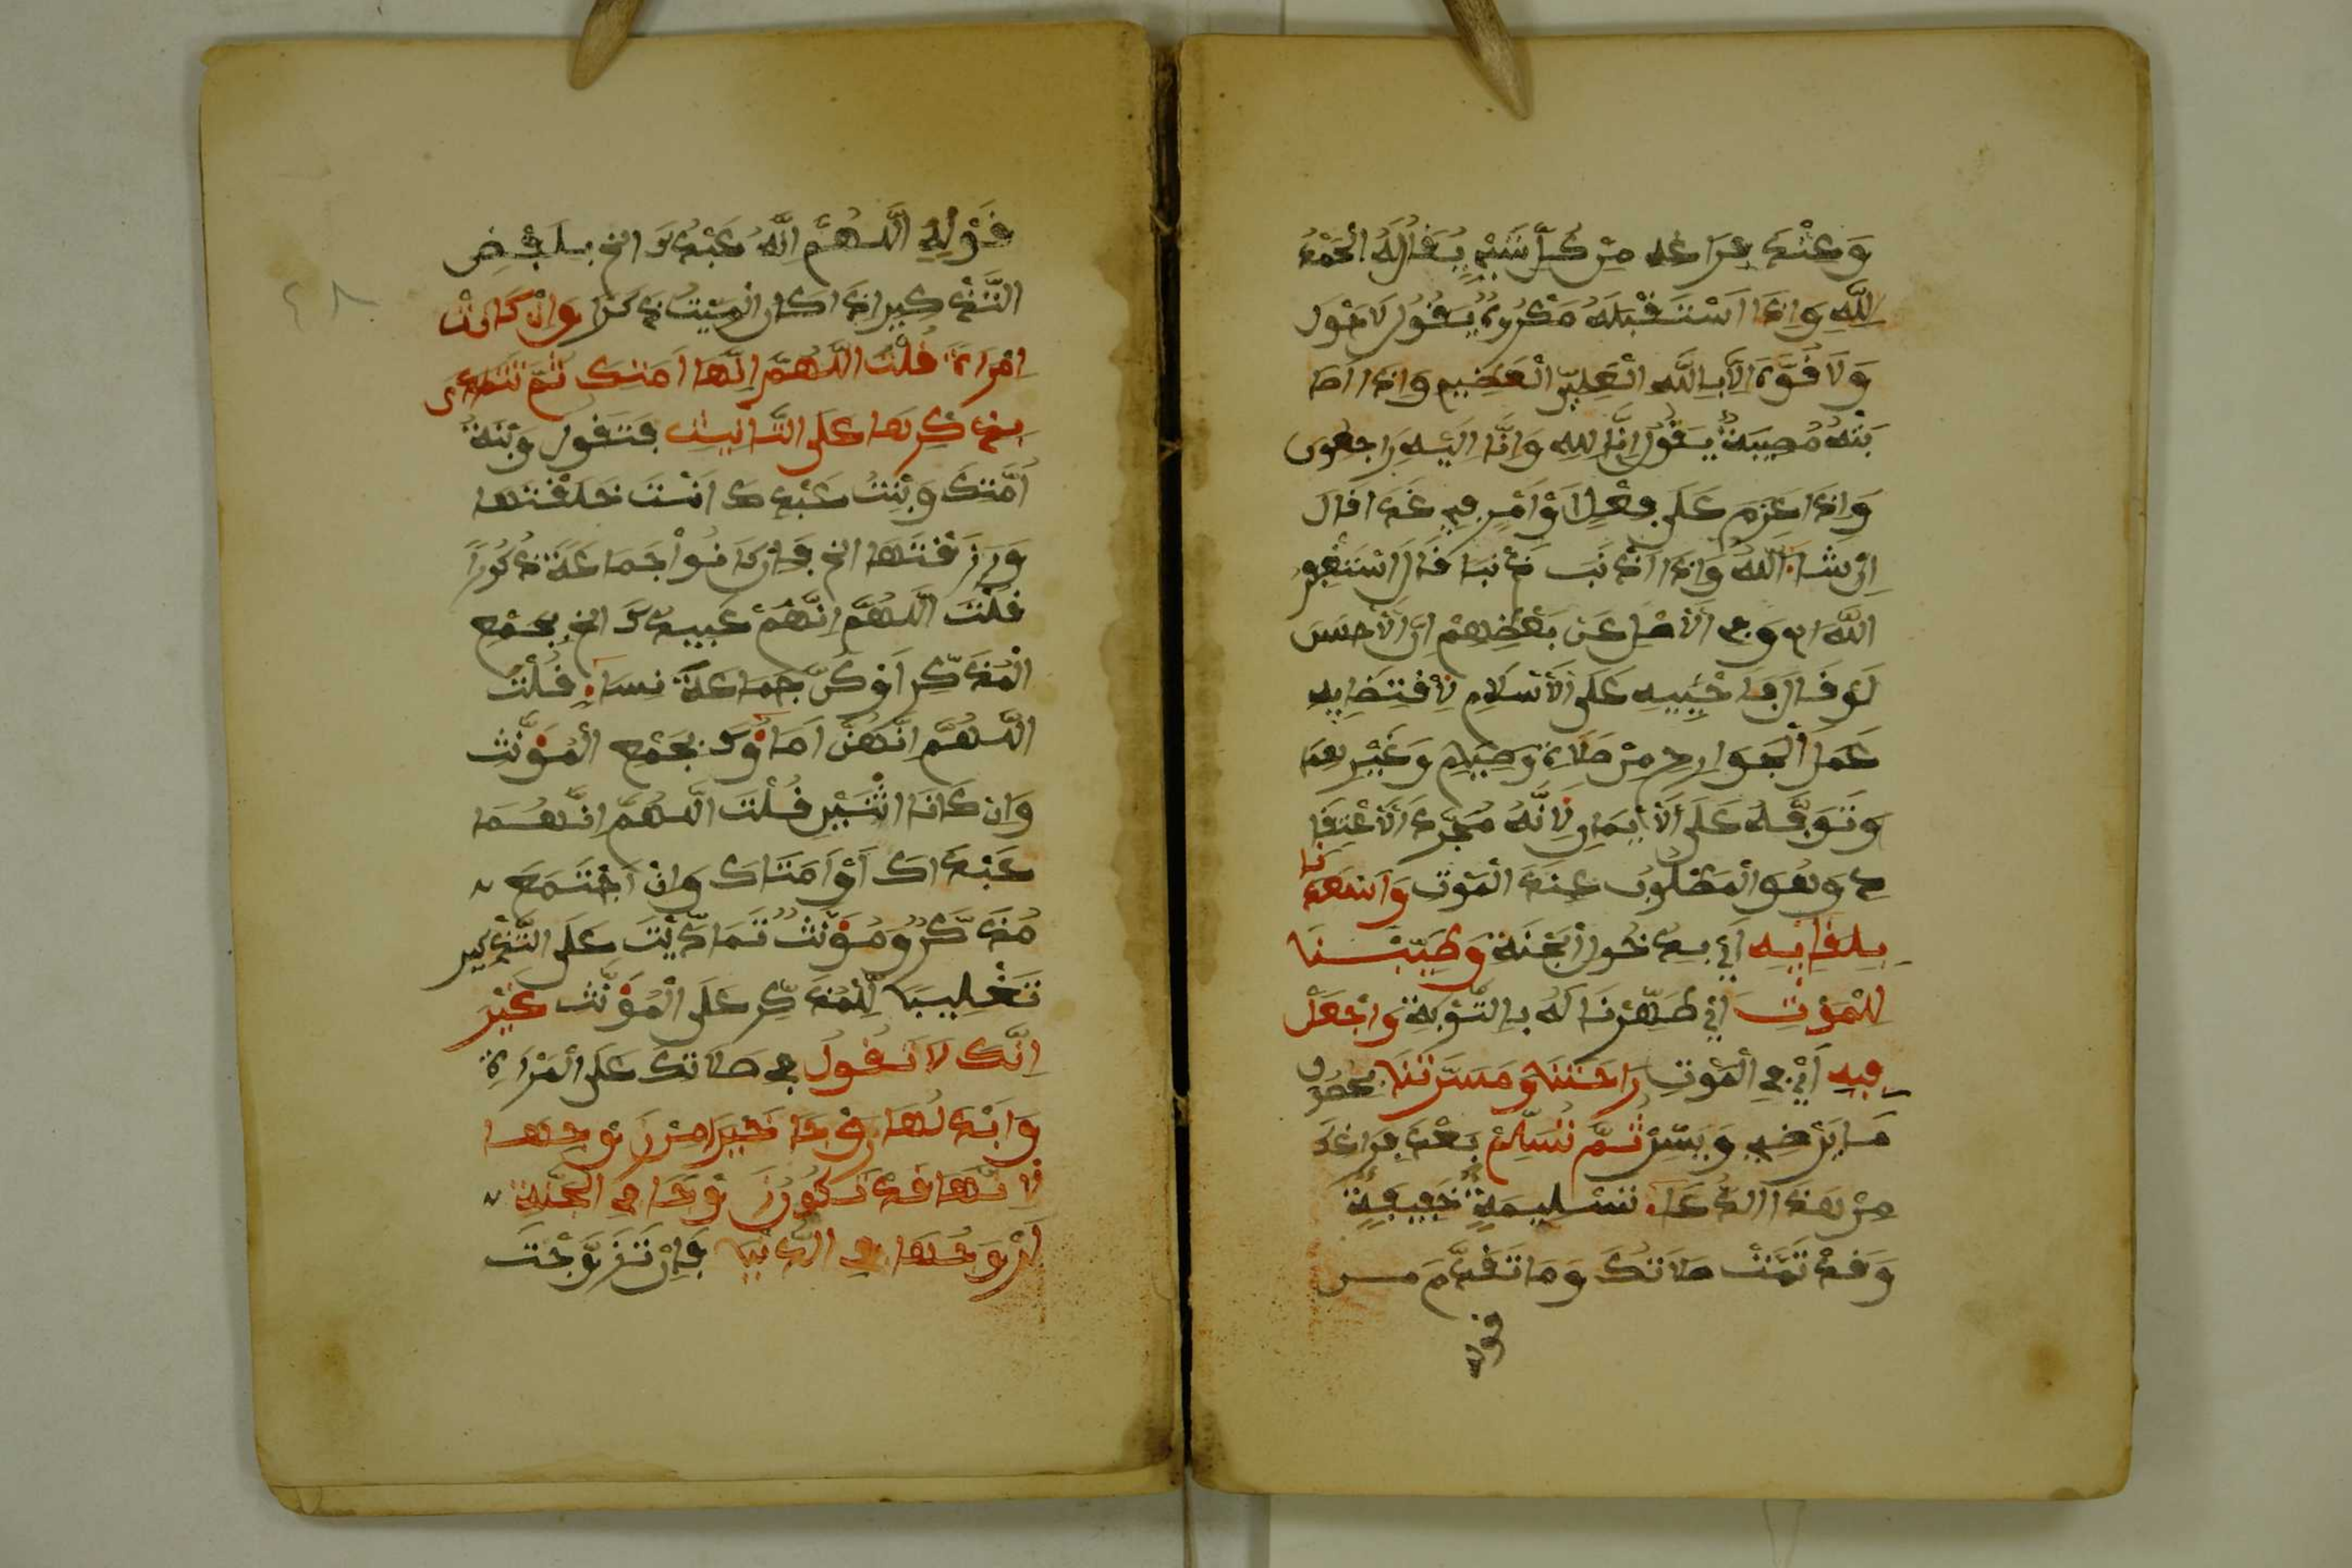 وَعِنْدَ فِرَاغه مِنْ كُلِّ شَيْءٍ يَقُولُ الْحَمْدُ
لِلَّهِ وَإِذَا اسْتَقْبَلَهُ مَكْرُوهٌ يَقُولُ لَا حَوْلَ
وَلَا قُوَّةَ إِلَّا بِاللَّهِ الْعَلِيِّ الْعَظِيمِ وَإِذَا أَصَا
بَتْهُ مُصِيبَةٌ يَقُولُ إِنَّا لِلهِ وَإِنَّا إِلَيْهِ رَاجِعُون
وَإِذَا عَزَمَ عَلَى فِعْلٍ أَوْ أَمْرٍ فِي غَدٍ قَالَ
إِنْ شَاءَ اللَّهُ وَإِذَا أَذْنَبَ ذَنْبا قَالَ أَسْتَغْفِرُ
اللَّهَ اه وَفِي الْأَصْلِ عَنْ بَعْضِهِمْ أَنَّ الْأَحْسَنَ
لَوْ قَالَ فَأَحْيِيهِ عَلَى الْإِسْلَامِ لِاقْتِضَايِه
عَمَلَ الْجَوَارِحِ مِنْ صَلَاةٍ وَصِيَامٍ وَغَيْرِهِمَا
وَتَوَفَّهُ عَلَى الْإِيمَانِ لِأَنَّهُ مُجَرَّدُ الْاعْتِقَا
دِ وَهُوَ الْمَطْلُوبُ عِنْدَ الْمَوْتِ وَأَسْعِدْنَا
بِلِقَايِهِ أَيْ بِدُخُولِ الْجَنَّةِ وَطَيِّبْنَا
لِلْمَوْتِ أَيْ طَهِّرْنَا لَهُ بِالتَّوْبَةِ وَاجْعَلْ
فِيهِ أَيْ فِي الْمَوْتِ رَاحَتَنَا وَمَسَرَّتَنَا بحصول
مَا يَرْضِي وَيَسُرّ ثُمَّ تُسَلِّمُ بَعْدَ فِرَاغك
مِنْ هَذَا الدُّعَاءِ تَسْلِيمَةً خَفِيفَةً
وَقَدْ تَمَّتْ صَلَاتُكَ وَمَا تَقَدَّمَ مِن
قوله
قَوْلِهِ اللَّهُمَّ إِنَّهُ عَبْدُكَ الخ بِلَفْظِ
التَّذْكِيرِ إِذَا كَانَ الْمَيِّتُ ذَكَرًا وَإِنْ كَانَتْ
امْرَأَةً قُلْتَ اللَّهُمَّ إِنَّهَا أَمَتُكَ ثُمَّ تَتَمَادَى
بِذِكْرِهَا عَلَى التَّأْنِيثِ فَتَقُولُ وَبِنْتُ
أَمَتِكَ وَبِنْتُ عَبْدِكَ أَنْتَ خَلَقْتَهَا
وَرَزَقْتَهَا الخ فَإِنْ كَانُوا جَمَاعَةً ذُكُورًا
قُلْتَ اللَّهُمَّ إِنَّهُمْ عَبِيدُكَ الخ بِجَمْعِ
الْمُذَكَّرِ أَوْ كُنَّ جَمَاعَةَ نِسَاءٍ قُلْتَ
اللَّهُمَّ إِنَّهُنَّ إِمَاؤُكَ بِجَمْعِ الْمُؤَنَّثِ
وَإِن كَانَا اثْنَيْنِ قُلْتَ اللَّهُمَّ إِنَّهُمَا
عَبْدَاكَ أَوْ أَمَتَاكَ وَإِنِ اجْتَمَعَ
مُذَكَّرٌ وَمُؤَنَّثٌ تَمَادَيْتَ عَلَى التَّذْكِيرِ
تَغْلِيبًا لِلْمُذَكَّرِ عَلَى الْمُؤَنَّثِ غَيْرَ
أَنَّكَ لَا تَقُولُ فِي صَلَاتِكَ عَلَى الْمَرْأَةِ
وَأَبْدِلْهَا زَوْجًا خَيْرًا مِنْ زَوْجِهَا
لِأَنَّهَا قَدْ تَكُونُ زَوْجًا فِي الْجَنَّةِ
لِزَوْجِهَا فِي الدُّنْيَا فَإِنْ تَزَوَّجْتَ
٤٨